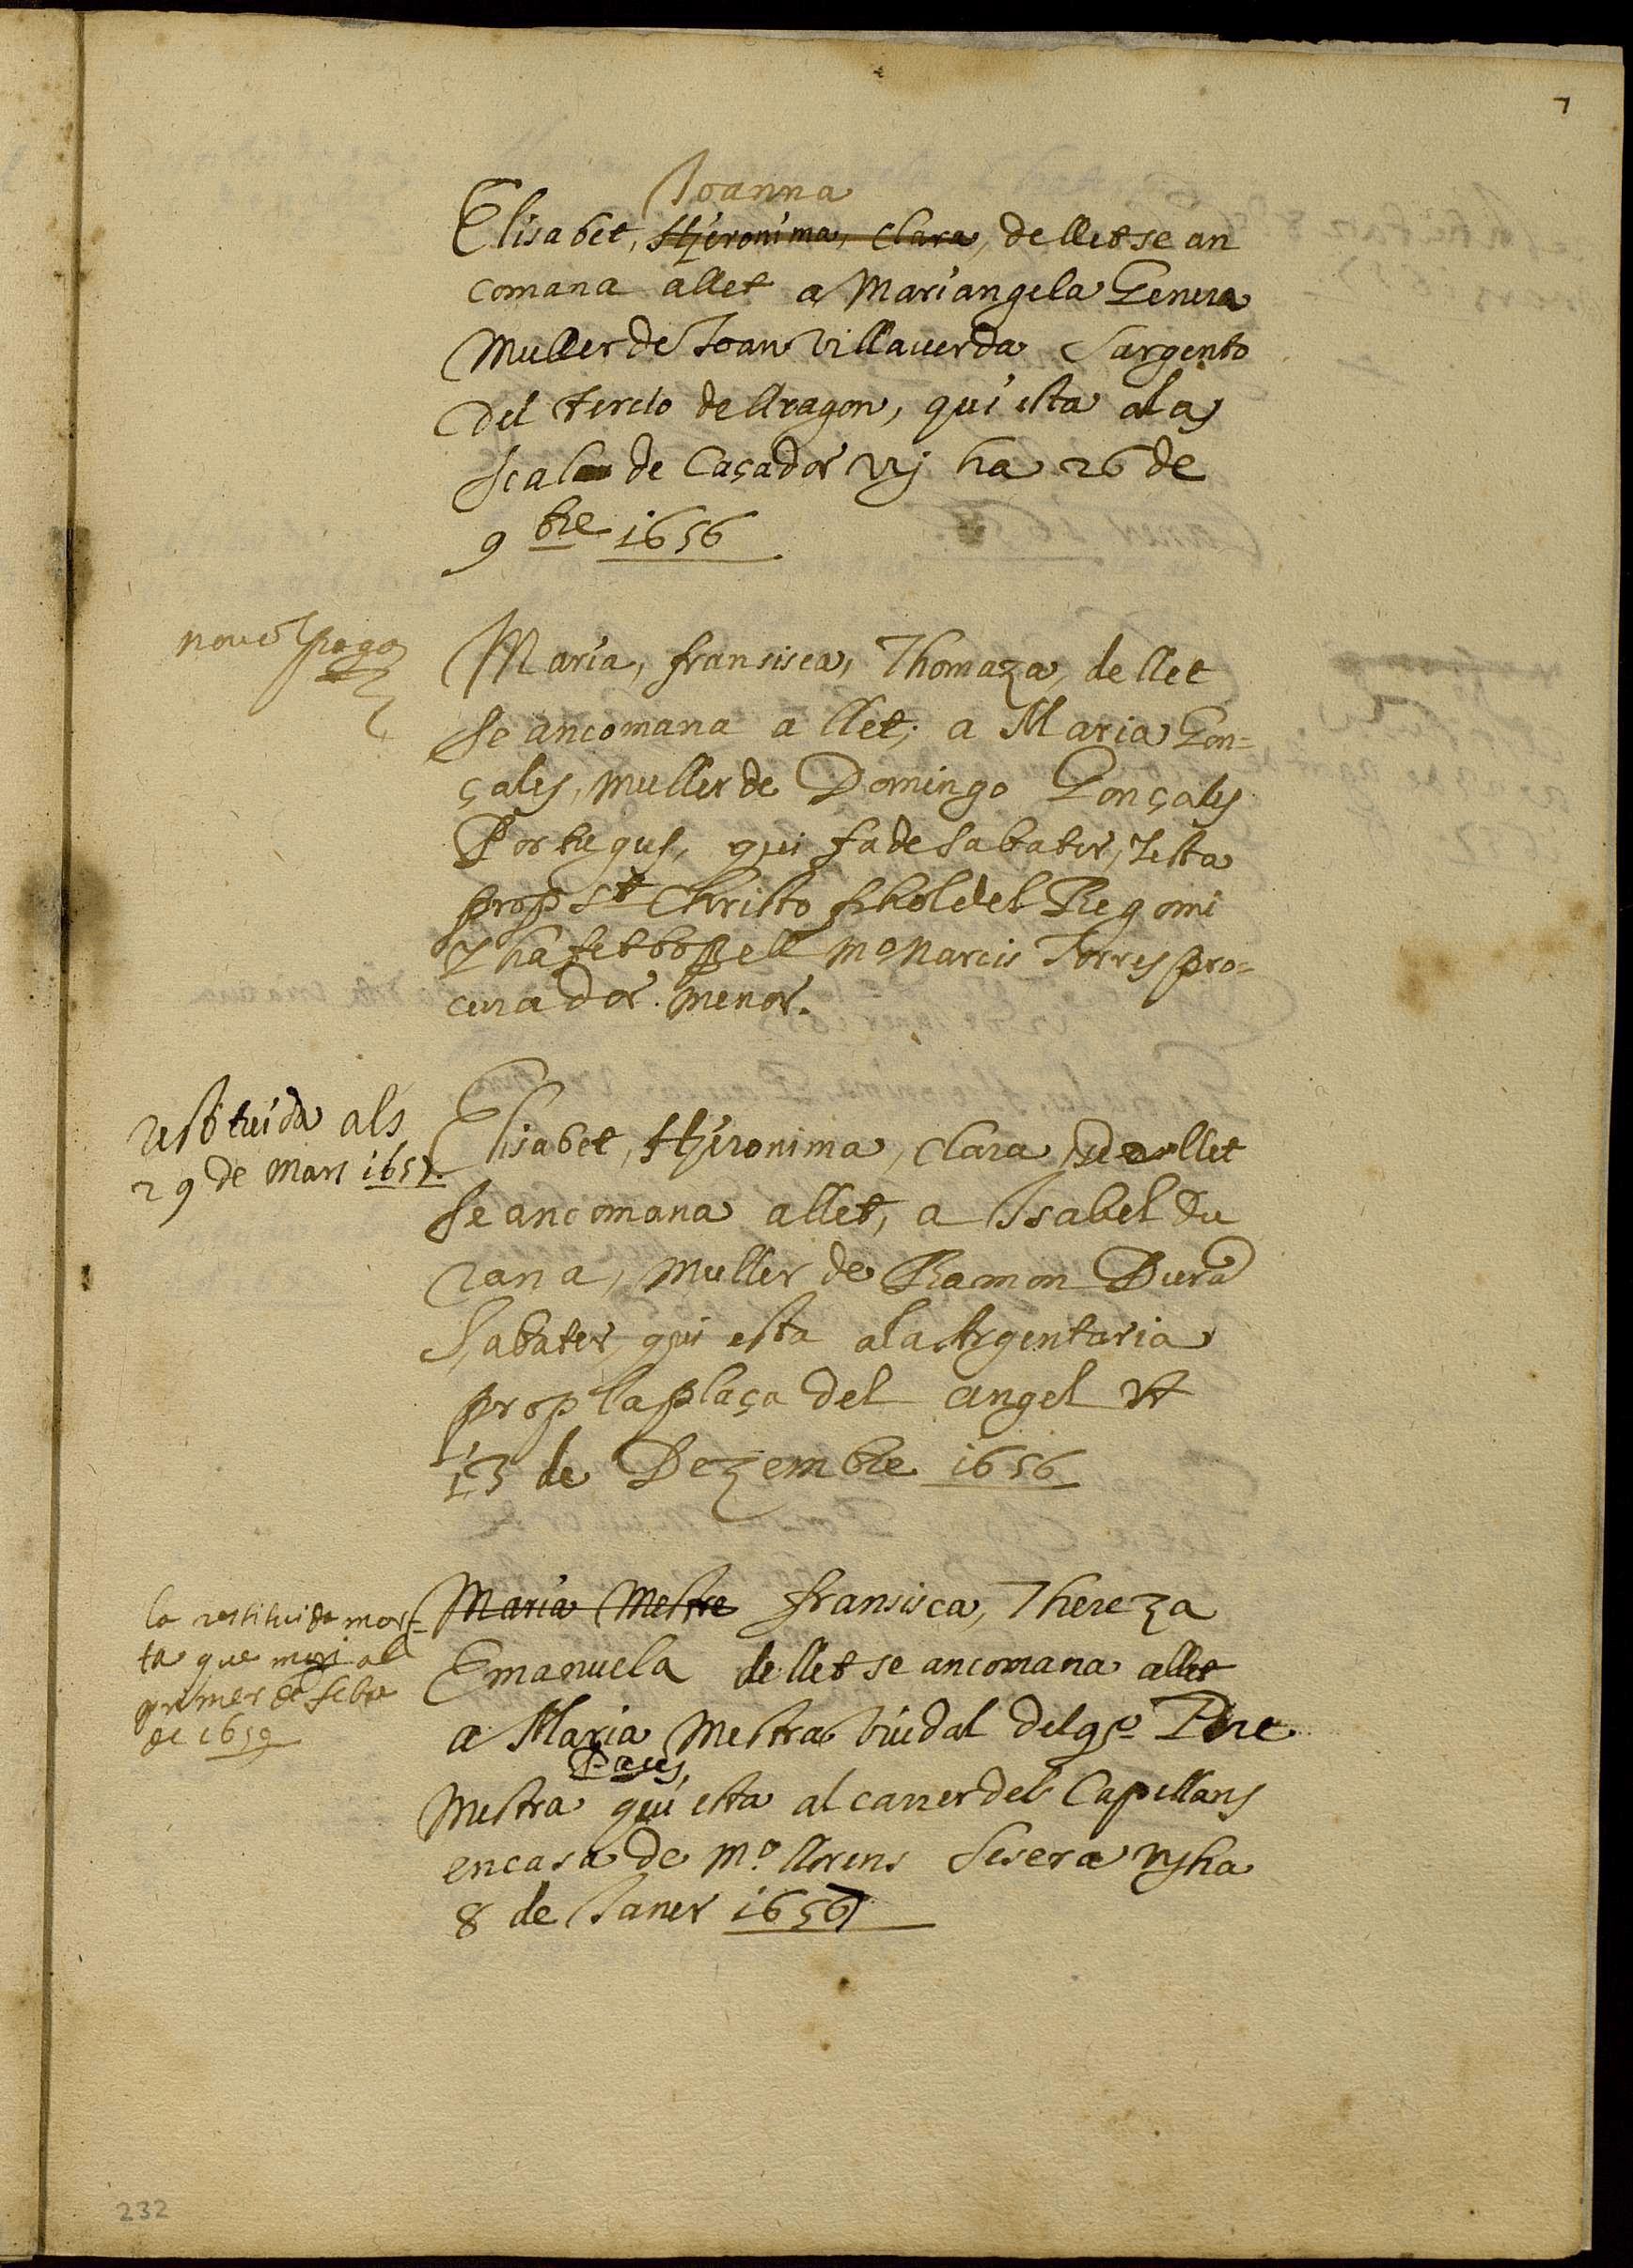 7
Joanna
Elisabet, Hjeronima, Clara, de llet se an
comana allet a Mariangela Genera
Muller de Joan Villauerda Sargento
del tercio de Aragon, qui esta ala
scala de Caçador vj ha 26 de
9 bre 1656
nou pago
Maria, fransisca, Thomaza, de llet
se ancomana a llet; a Maria Gon=
çales, muller de Domingo Gonçales
Portugus, qui fa de Sabater, y esta
prop St Christo fhol del Regomi
y ha fet lo Mo Narcis Torres pro=
curador menor.
restituida als
29 de Mars 1657.
Elisabet, Hjeronima, Clara de llet
se ancomana allet, a Isabel Du
rana, muller de Ramon Dura
Sabater, qui esta ala Argentaria
prop la plaça del angel vt
13 de Dezembre 1656
la restituida mor=
ta que mori al
primer de febre
de 1659
Maria Mestre fransisca, Thereza
Emanuela de llet se ancomana allet
a Maria Mestra viudal del qo. Pere
Pages,
Mestra qui esta al carrer dels Capellans
en casa de Mo. llorens Sesera vj ha
8 de Janer 1657
232